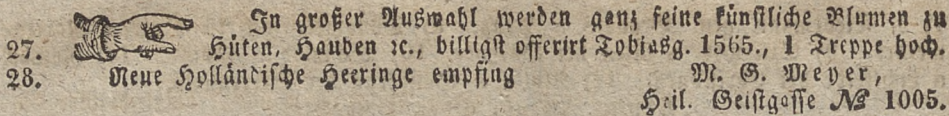 In großer Auswahl werden ganz feine künstliche Blumen zu
27. Hüten, Hauben ꝛc., billigst offerirt Tobiasg. 1565., 1 Treppe hoch.
28. Neue Holländische Heeringe empfing M. G. Meyer,
Heil. Geistgasse № 1005.